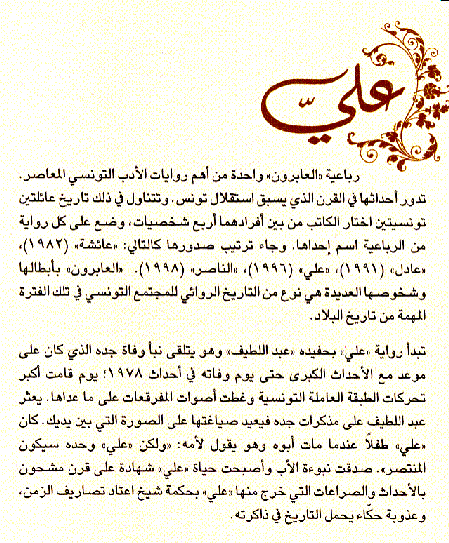 عليّ
رباعية «العابرون» واحدة من أهم روايات الأدب التونسي المعاصر.
تدور أحداثها في القرن الذي يسبق استقلال تونس، وتتناول في ذلك تاريخ عائلتين
تونسيتين اختار الكاتب من بين أفرادهما أربع شخصيات، وضع على كل رواية
من الرباعية اسم إحداها، وجاء ترتيب صدورها كالتالي: «عائشة» (١٩٨٢)،
«عادل» (١٩٩١)، «علي» (١٩٩٦)، «الناصر» (١٩٩٨). «العابرون» بأبطالها
وشخوصها العديدة هي نوع من التاريخ الروائي للمجتمع التونسي في تلك الفترة
المهمة من تاريخ البلاد.
تبدأ رواية «علي» بحفيده «عبد اللطيف» وهو يتلقى نبأ وفاة جده الذي كان على
موعد مع الأحداث الكبرى حتى يوم وفاته في أحداث ١٩٧٨؛ يوم قامت أكبر
تحركات الطبقة العاملة التونسية وغطت أصوات المفرقعات على ما عداها. يعثر
عبد اللطيف على مذكرات جده فيعيد صياغتها على الصورة التي بين يديك. كان
«علي» طفلاً عندما مات أبوه وهو يقول لأمه: «ولكن «علي» وحده سيكون
المنتصر». صدقت نبوءة الأب وأصبحت حياة «علي» شهادة على قرن مشحون
بالأحداث والصراعات التي خرج منها «علي» بحكمة شيخ اعتاد تصاريف الزمن،
وعذوبة حكّاء يحمل التاريخ في ذاكرته.